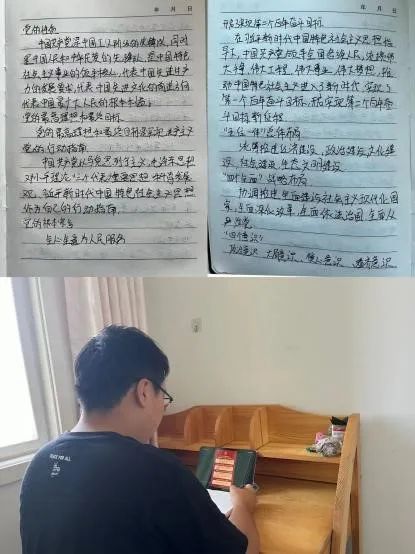 年 月 日
党的性质
中国共产党是中国工人阶级的先锋队,同时
是中国人民和中华民族的先锋队,是中国特色
社会主义事业的领导核心,代表中国先进生产
力的发展要求,代表中国先进文化的前进方向
代表中国最广大人民的根本利益。
党的最高理想和最终目标
党的最高理想和最终目标是实现共产主义
党的行动指南
中国共产党以马克思列宁主义、毛泽东思想
邓小平理论、三个代表重要思想、科学发展
观、习近平新时代中国特色社会主义思想
作为自己的行动指南
党的根本宗旨
全心全意为人民服务
年 月 日
开启实现第二个百年奋斗目标
在习近平新时代中国特色社会主义思想指
导下,中国共产党领导全国各族人民,统揽伟
大斗争、伟大工程、伟大事业、伟大梦想,推
动中国特色社会主义进入了新时代,实现了
第一个百年奋斗目标,开启实现第二个百年奋
斗目标新征程
"五位一体"总体布局
统筹推进经济建设、政治建设、文化建
设、社会建设、生态文明建设
"四个全面"战略布局
协调推进全面建设社会主义现代化国
家、全面深化改革、全面依法治国、全面从
严治党
"四个意识"
政治意识、大局意识、核心意识、看齐意识